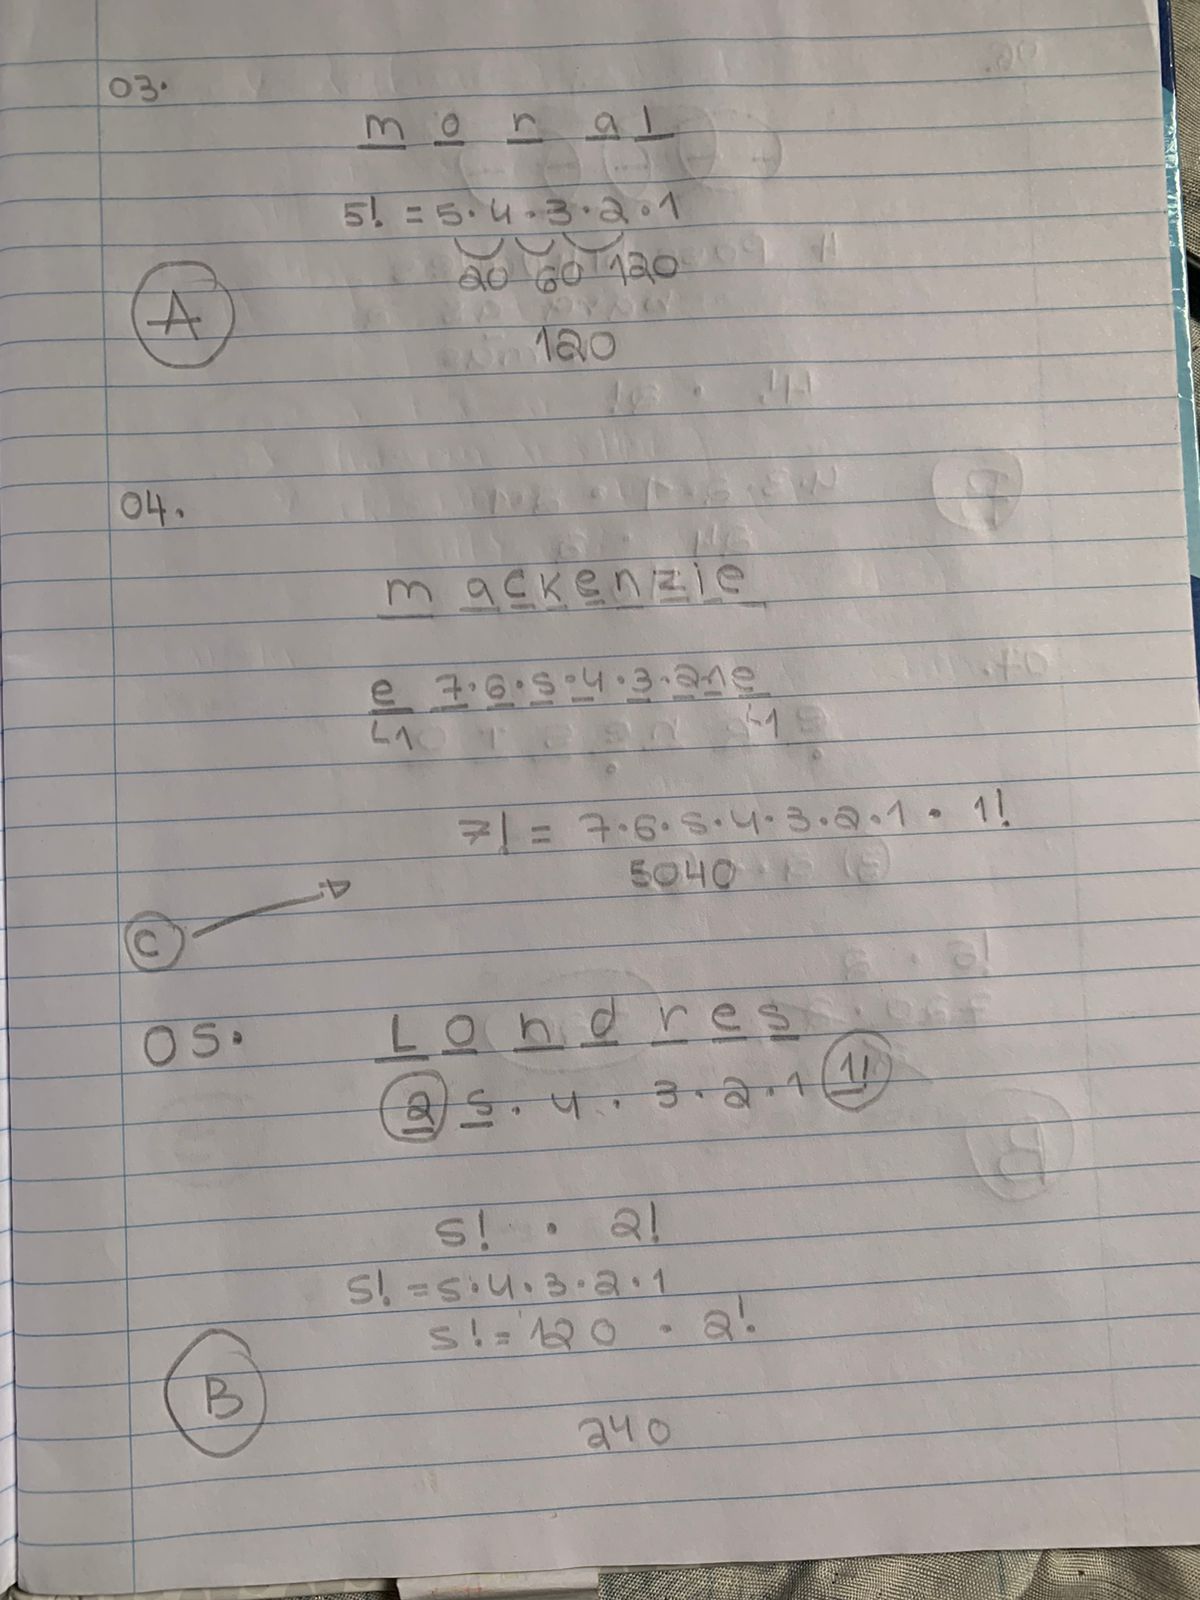 03.
m o r a l
5! = 5.4.3.2.1
20 60 120
A
120
04.
mackenzie
e 7.6.5.4.3.2 1 e
↳1 ↳1
7! = 7.6.5.4.3.2.1 . 1!
5040
C
05. Londres
2 5.4.3.2.1 1!
5! . 2!
5! = 5.4.3.2.1
5! = 120 . 2!
B
240